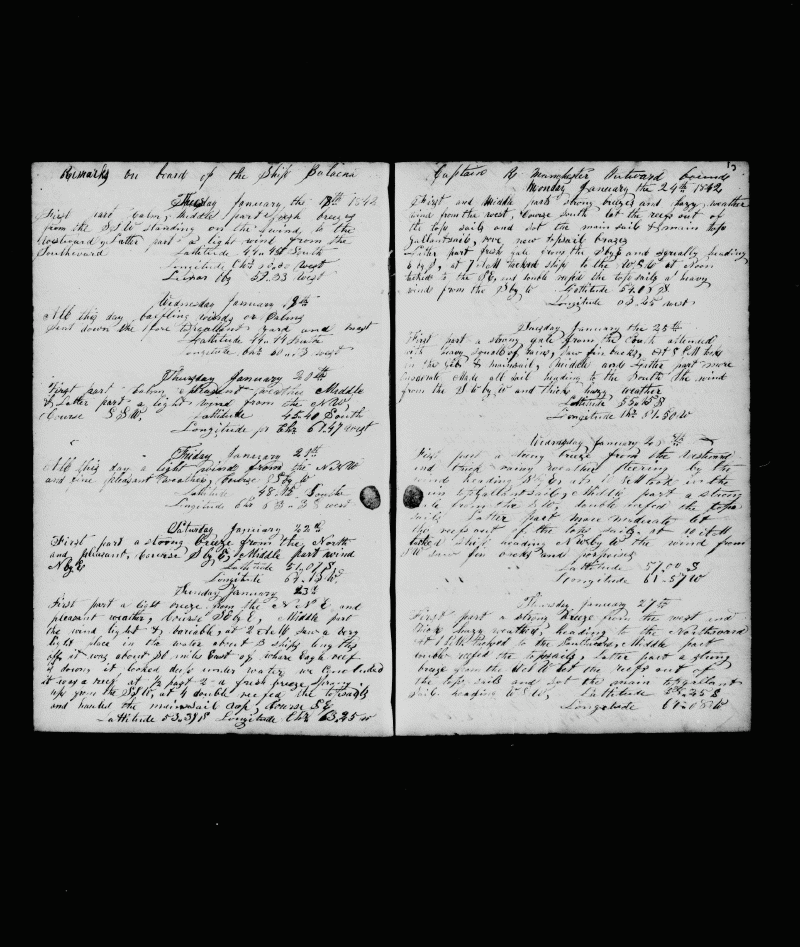 Remarks on board of the Ship Balaena
Tuesday January the 18th 1842
First part Calm, Middle part fresh breezes
from the S.S.W standing on the wind to the
Westward, Latter part a light wind from the
Southward Lattitude 44..48 South
Longitude West
Lunar by West
Wednesday January 19th
All this day baffling winds or Calms
Sent down the fore topgallant yard and mast
Lattitude 44..44 South
Longitude West
Thursday January 20th
First part Calm pleasant weather Middle
& Latter part a light wind from the NW,
Course SSW, Lattitude 45..40 South
Longitude pr Chr 61.47 West
Friday January 21st
All this day a light wind from the NNW
and fine pleasant weather, Course S by W
Latitude 48 South
Longitude Chr West
Saturday January 22th
First part a strong breeze from the North
and pleasant, Course S by E, Middle part wind
N by W Lattitude 51..07 S,
Longitude 64..13 W
Sunday January 23d
First part a light breeze from the N.N.E and
pleasant weather, Course S by E, Middle part
the wind light & variable, at 2 AM saw a very
light place in the water about 3 ships lengths
off it was about miles East of Eagle reef
it down, it looked deep under water, we Concluded
it was a reef at ½ past 2 a fresh breeze sprang
up from the SSW, at 4 double reefed the topsails
and hauled the mainsail up, Course SE
Lattitude 53..39 S Longitude Chr 63.25 W
Captain R. Manchester Outward bound
Monday January the 24th 1842
First and Middle part strong breezes and fogy weather
wind from the west, Course South let the reefs out of
the top sails and set the main sail & main top
gallantsail, rove new topsail braces
Latter part fresh gale from the S by E and squally heading
at 7 AM tacked ship to the W.S.W at Noon
tacked to the SE, and double reefed the topsails a heavy
wind from the S by W Lattitude S
Longitude West
Tuesday January the 25th
First part a strong gale from the South attended
with heavy squalls of rain, saw fin backs, at 8 PM took
in the Gib & mainsail, Middle and Latter part more
moderate Made all sail heading to the South the wind
from the SW by W and thick hazy weather
Lattitude S
Longitude Chr W
Wednesday January 26th
First part a strong breeze from the Westward
and thick rainy weather steering by the
wind heading S by E, at 10 PM took in the
main topgallantsail, Middle part a strong
gale from the SW, double reefed the topsa
sails Latter part more moderate let
the reefs out of the top sails at 10 AM
tacked ship heading NW by W the wind from
SW saw fin backs and porpoises
Lattitude 57..00 S
Longitude 61..57 W
Thursday January 27th
First part a strong breeze from the west and
thick hazy weather, heading to the Northward
at 1 PM tacked to the Southward, Middle part
double reefed the topsails, Latter part a strong
breeze from the WNW let the reefs out of
the top sails and set the main topgallant
sail heading WSW, Lattitude S
Longetude 64..08 W